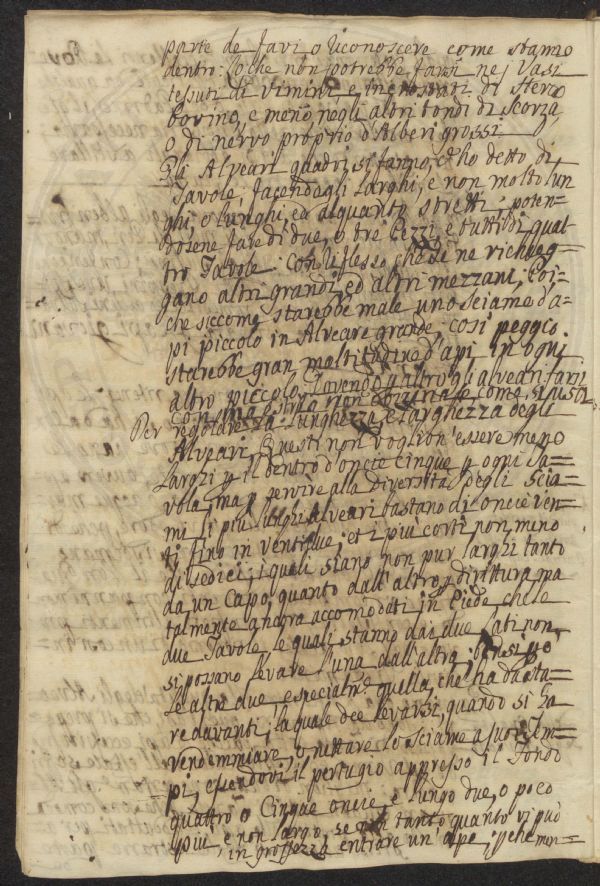 parte de favi o riconoscere come stanno
dentro: loche non potrebbe farsi ne i Vasi
tessuti di vimini, e incrostati di sterco
bovino, e meno negli altri tondi di scorza,
o di nervo proprio d'Alberi grossi
Gli Alveari quadri si fanno, come ho detto di
Tavole, facendogli larghi, e non molto lun=
ghi, o lunghi, ed alquanto stretti: poten=
dosene fare di due, o tre pezzi, e tutti di quat=
tro Tavole con riflesso, che se ne richieg=
gano altri grandi, ed altri mezzani, poi=
che siccome starebbe male uno sciame d'a=
pi piccolo in Alveare grande, così peggio
starebbe gran moltitudine d'api in ogni
altro piccolo. Dovendo gli alveari farsi
con maestria non come si usa
Per regolare la lunghezza, e larghezza degli
Alveari, Questi non voglion'essere meno
larghi p il dentro d'oncie cinque p ogni ta=
vola, ma p servire alla diversità degli scia=
mi li più lunghi Alveari bastano di oncie ven=
ti fino in ventidue, et i più corti non meno
di sedici, i quali siano non pur larghi tanto
da un capo, quanto dall'altro p dirittura ma
talmente ancora accomodati in piede, che le
due Tavole, le quali stanno dai due lati non
si possano levare l'una dall'altra, bensì po
le altre due, e specialm.e quella, che ha da sta=
re davanti, la quale dee levarsi, quando si ha
vendemmiare, o nettare lo sciame a suoi tem=
pi, essendovi il pertugio appresso il fondo
quattro o cinque oncie, e lungo due, o poco
più, e non largo, se non tanto quanto vi può
in grossezza entrare un'ape, p che mon=